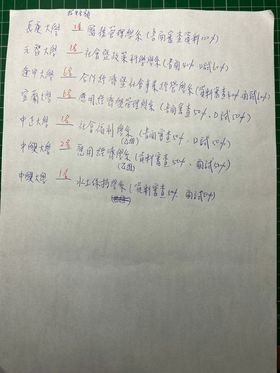 招生名額
長庚大學 1名 醫務管理學系(書面審查資料100%)
元智大學 1名 社會暨政策科學學系(書面40% 口試60%)
逢甲大學 1名 合作經濟暨社會事業經營學系(書面審查50% 面試50%)
宜蘭大學 1名 應用經濟與管理學系(書面審查50%、口試50%)
中正大學 1名 社會福利學系(書面審查50%、口試50%)
中興大學 2名 應用經濟學系(資料審查50%、面試50%)
中興大學 1名 水土保持學系(資料審查50% 面試50%)